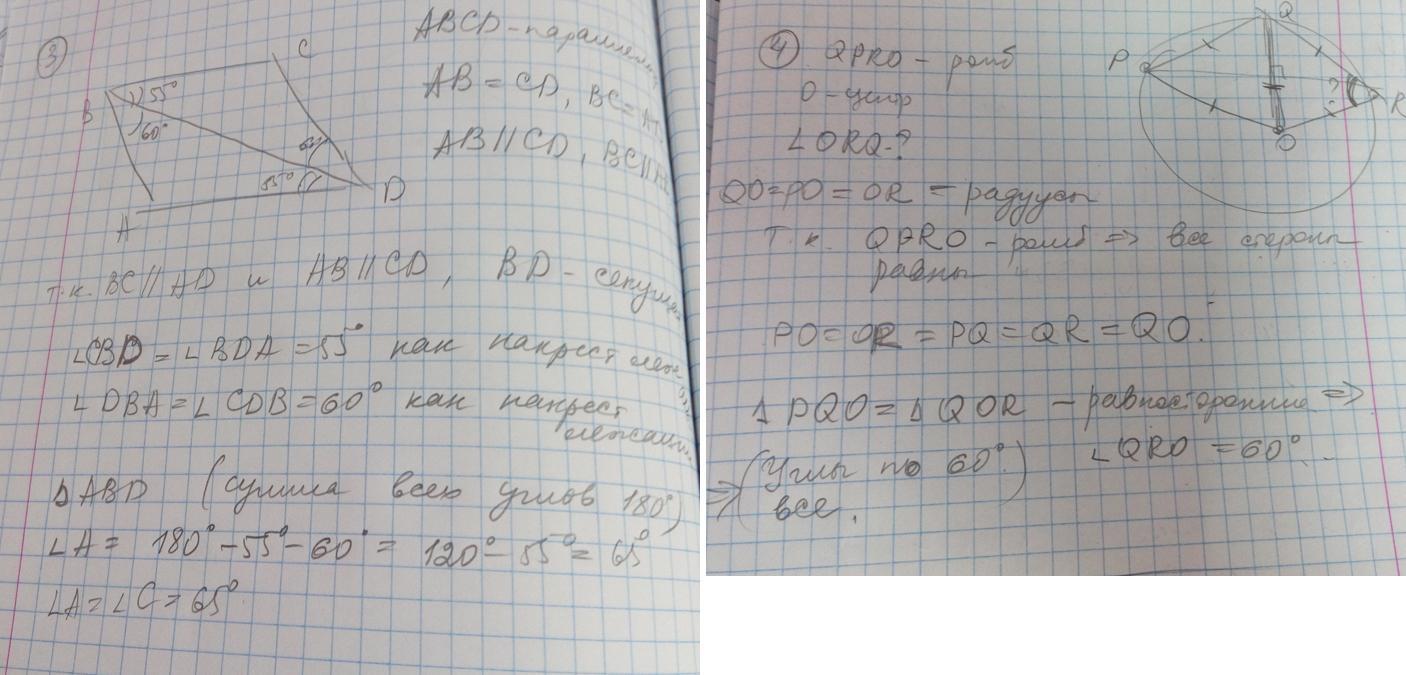 3
C
B
55°
60°
60°
55°
D
A
ABCD - паралле
AB = CD, BC =
AB || CD, BC ||
т.к. BC || AD и AB || CD, BD - секущ
∠CBD = ∠BDA = 55° как накрест леж
∠DBA = ∠CDB = 60° как накрест
лежащи
ΔABD (сумма всех углов 180°)
∠A = 180° - 55° - 60° = 120° - 55° = 65°
∠A = ∠C = 65°
4
QPRO - ромб
O - центр
∠ORQ - ?
Q
P
?
R
O
QO = PO = OR - радиусы
т.к. QPRO - ромб => все стороны
равны
PO = OR = PQ = QR = QO.
Δ PQO = Δ QOR - равносторонние =>
=> (Углы по 60°) ∠QRO = 60°
все.